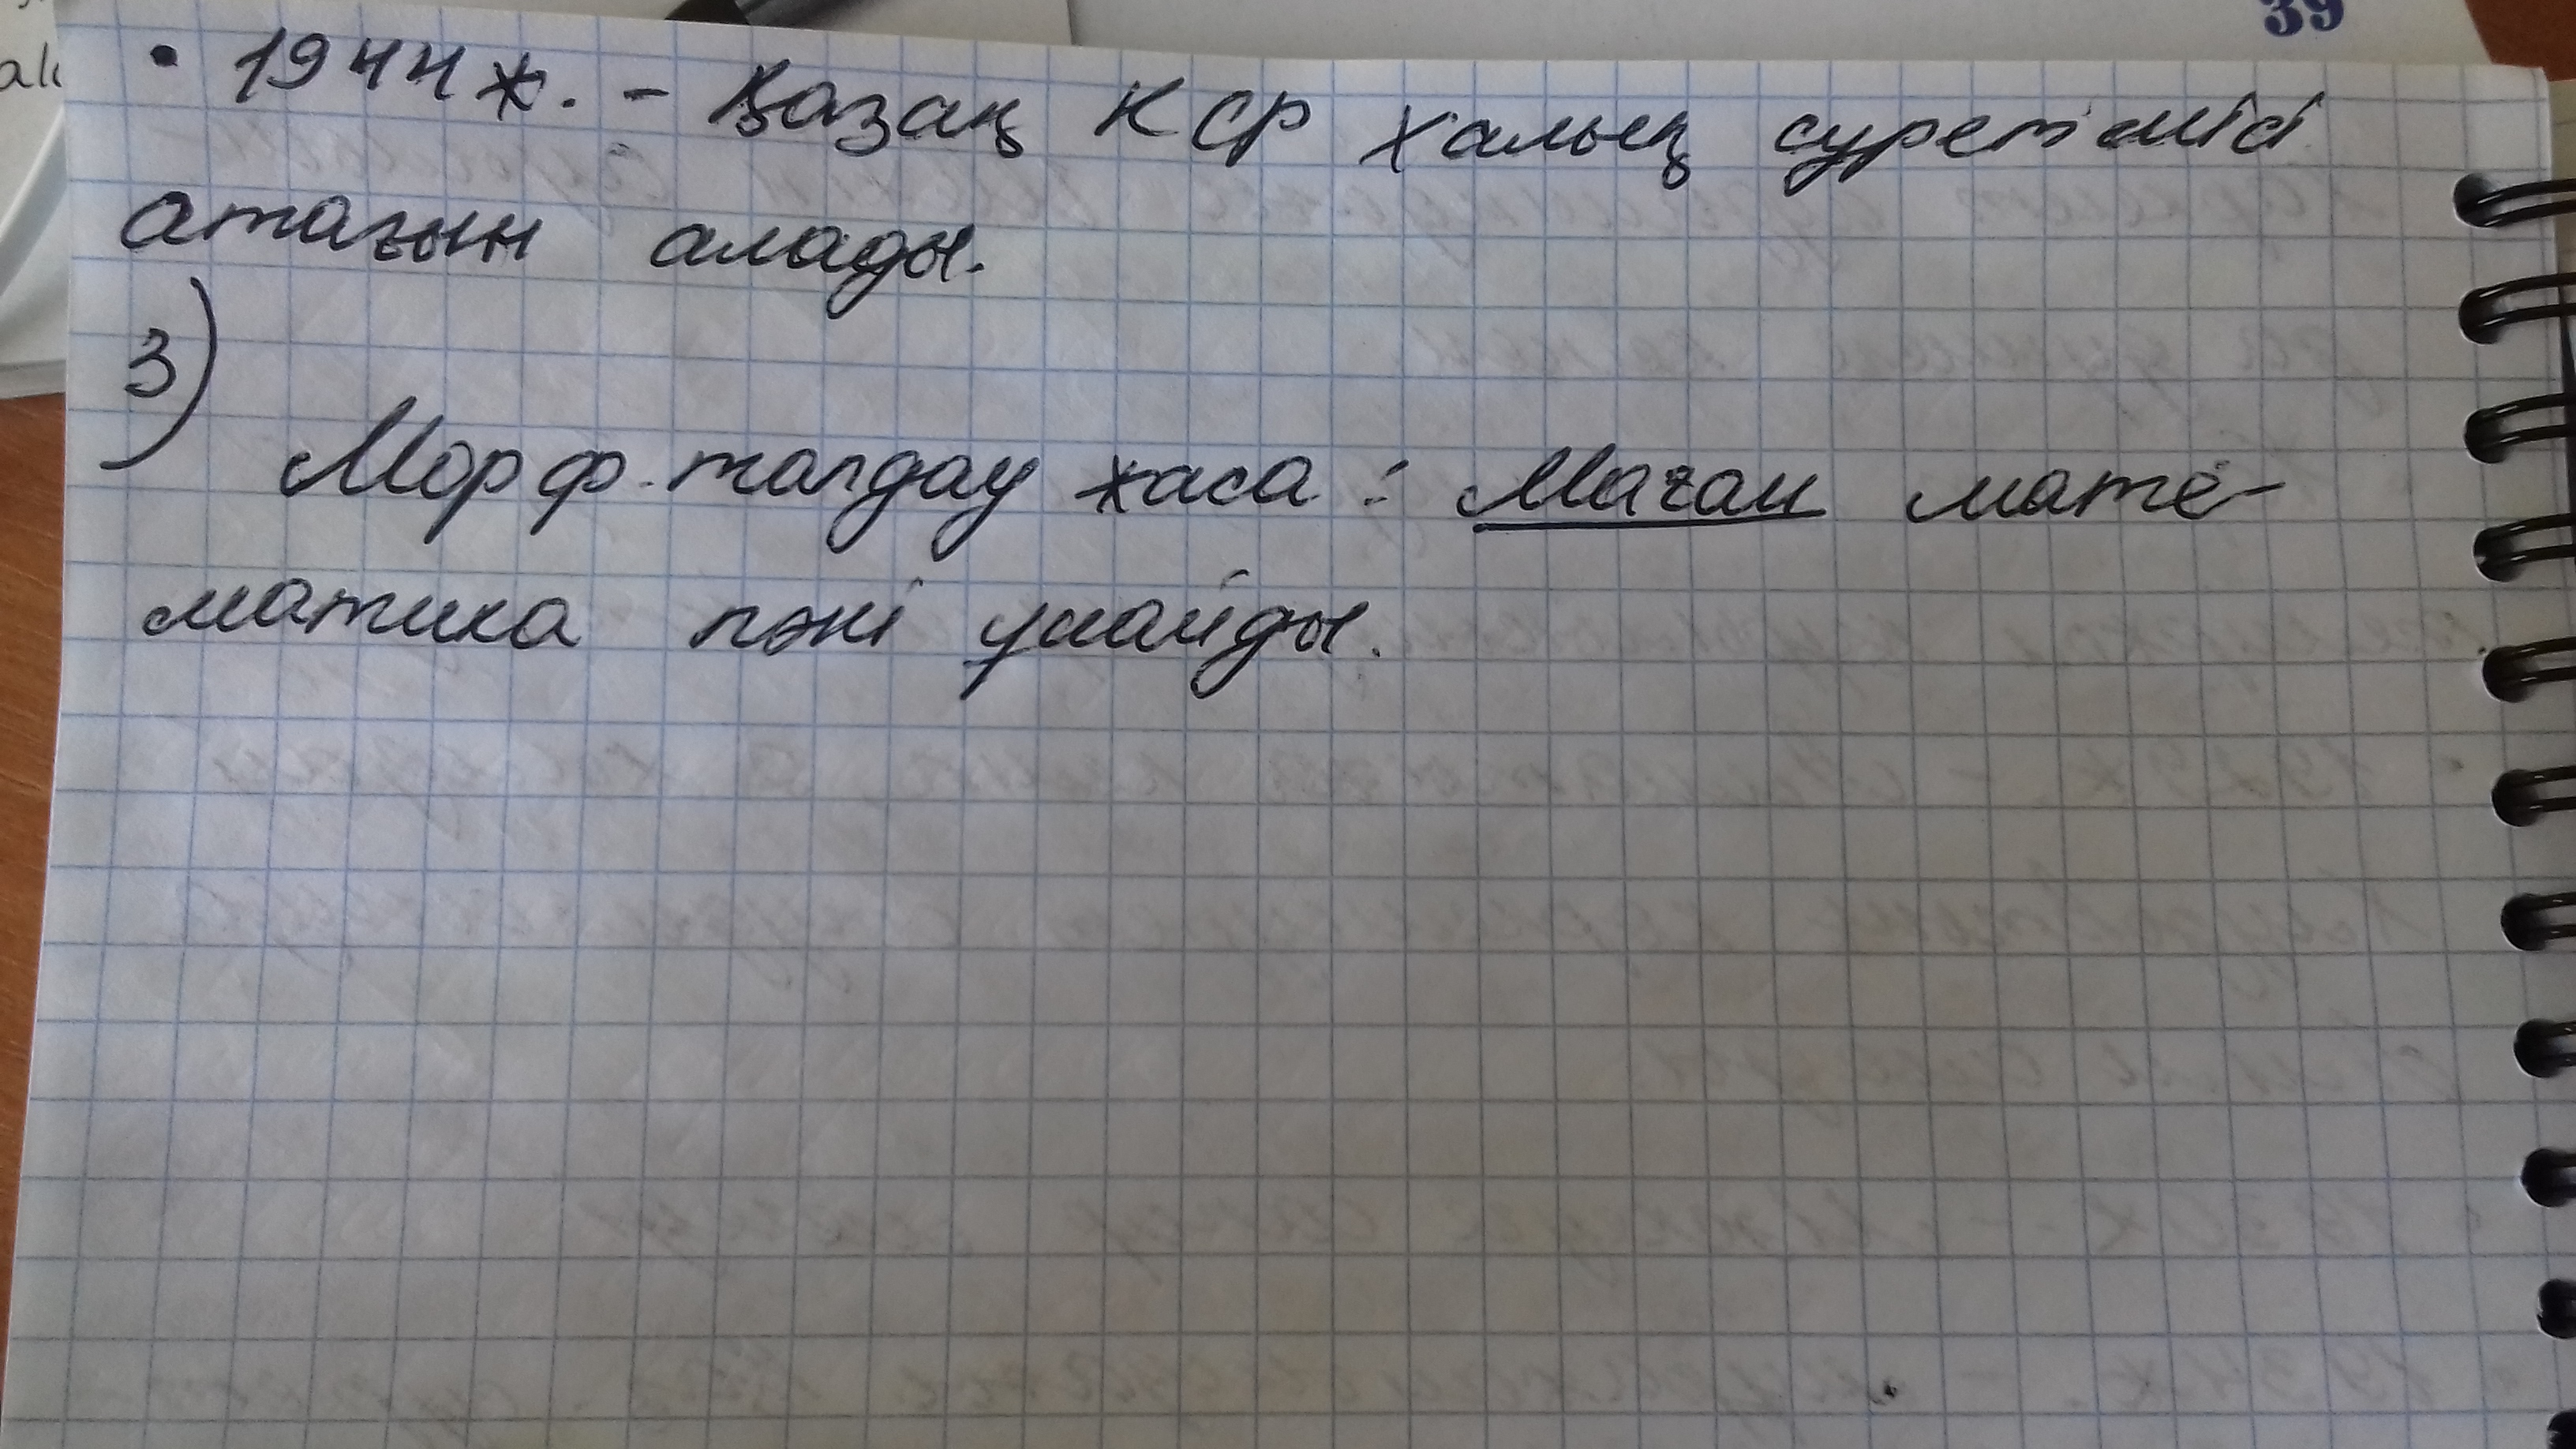 39
• 1944 ж. - Қазақ КСР халық суретшісі
атағын алады.
3)
Морф. талдау жаса : Маған мате-
матика пәні ұнайды.